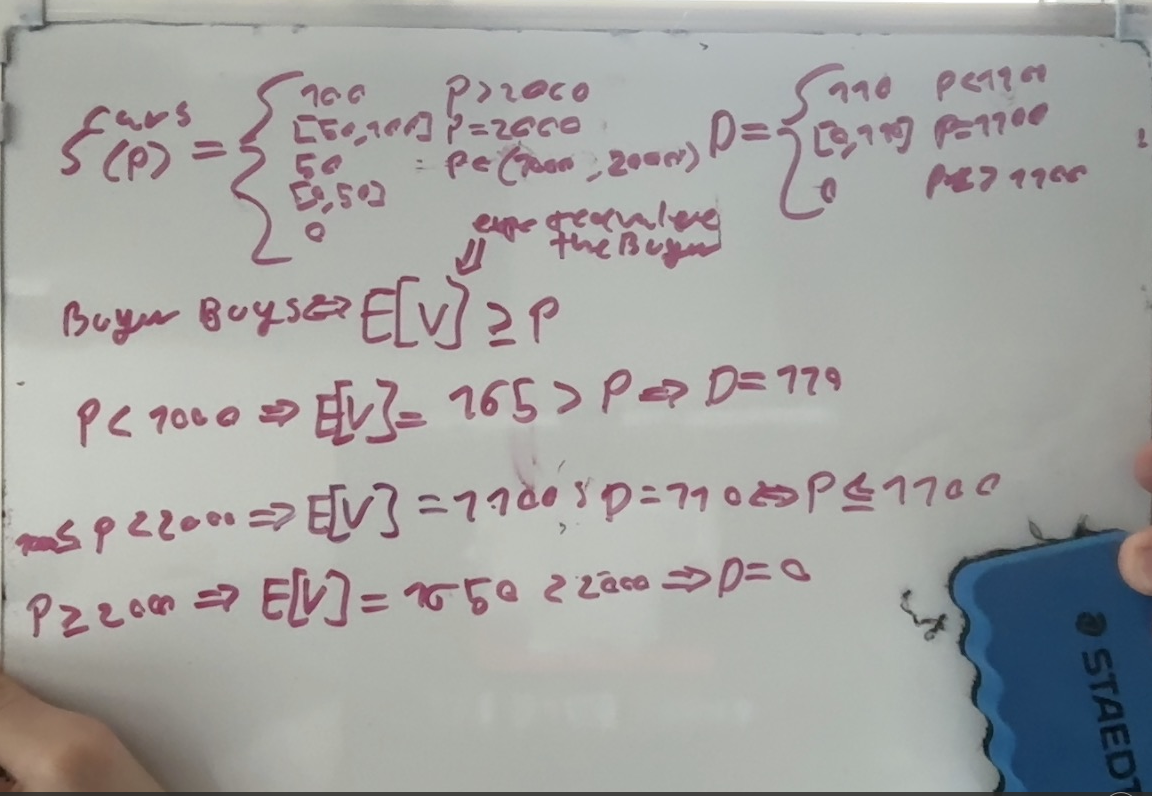 Cars
S(P) = { 100 P>2000
[50,100] P=2000
50 P∈(1000,2000)
[0,50]
0
D= { 110 P<1100
[0,110] P=1100
0 P>1100
the Buyer
Buyer Buys⇔ E[V] ≥ P
P<1000 ⇒ E[V]= 165 > P ⇒ D=110
≤ P<2000 ⇒ E[V] = 1100 D=110⇔P≤1100
P≥2000 ⇒ E[V] = 1650 < 2000 ⇒ D=0
STAEDT